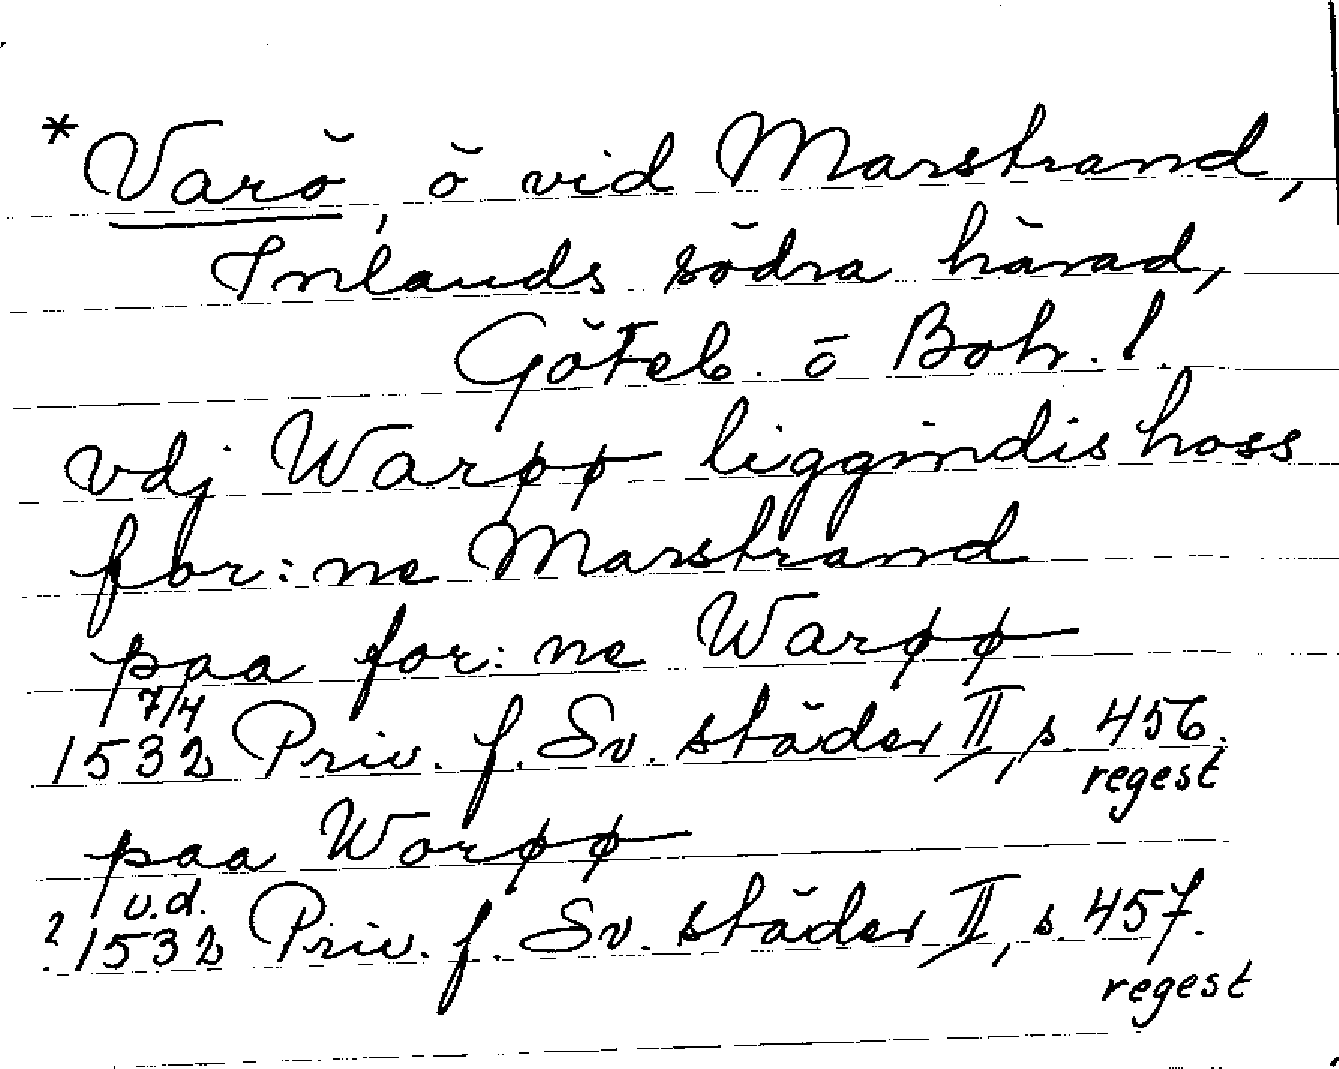 *Varö, ö vid Marstrand,
Inlands södra härad,
Göteb. o Boh. l.
vdj Warøø liggindis hoss
for:ne Marstrand
paa for:ne Warøø
7/4
1532 Priv. f. Sv. städer II, s. 456.
regest
paa Worøø
u.d.
?1532 Priv. f. Sv. städer II, s. 457.
regest